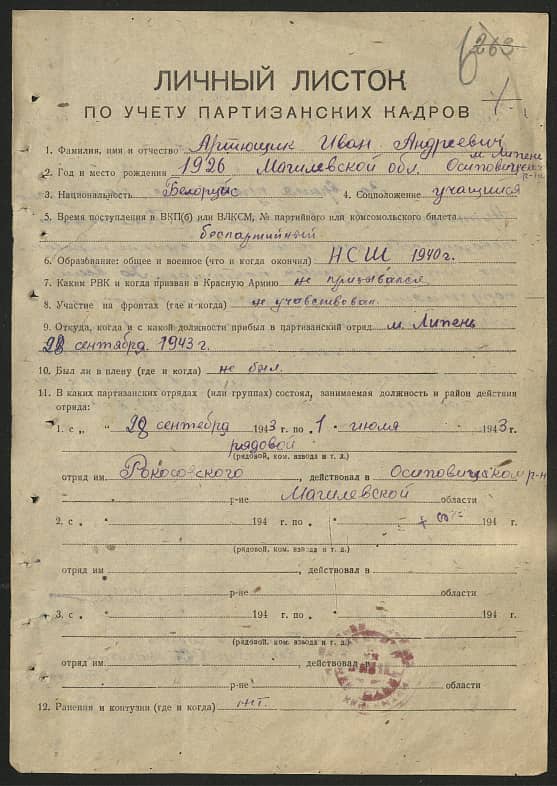 263
ЛИЧНЫЙ ЛИСТОК
ПО УЧЕТУ ПАРТИЗАНСКИХ КАДРОВ
1. Фамилия, имя и отчество Артющик Иван Андреевич
м. Липень
2. Год и место рождения 1926 Магилевской обл. Осиповицкий
р-н
3. Национальность Белорус 4. Соцположение учащийся
5. Время поступления в ВКП(б) или ВЛКСМ, № партийного или комсомольского билета
беспартийный
6. Образование: общее и военное (что и когда окончил) НСШ 1940 г.
7. Каким РВК и когда призван в Красную Армию не призывался
8. Участие на фронтах (где и когда) не учавствовал
9. Откуда, когда и с какой должности прибыл в партизанский отряд м. Липень
28 сентября 1943 г.
10. Был ли в плену (где и когда) не был.
11. В каких партизанских отрядах (или группах) состоял, занимаемая должность и район действия
отряда:
1. с „ 28 сентября 1943 г. по „ 1 " июля 1943 г.
рядовой
(рядовой, ком. взвода и т. д.)
отряд им. Рокосовского, действовал в Осиповицком р-н
р-не Магилевской области
2. с „ " 194 г. по „ " 194 г.
(рядовой, ком. взвода и т. д.)
отряд им , действовал в
р-не области
3. с „ " 194 г. по „ " 194 г.
(рядовой, ком. взвода и т. д.)
отряд им , действовал в
р-не области
12. Ранения и контузии (где и когда) нет.